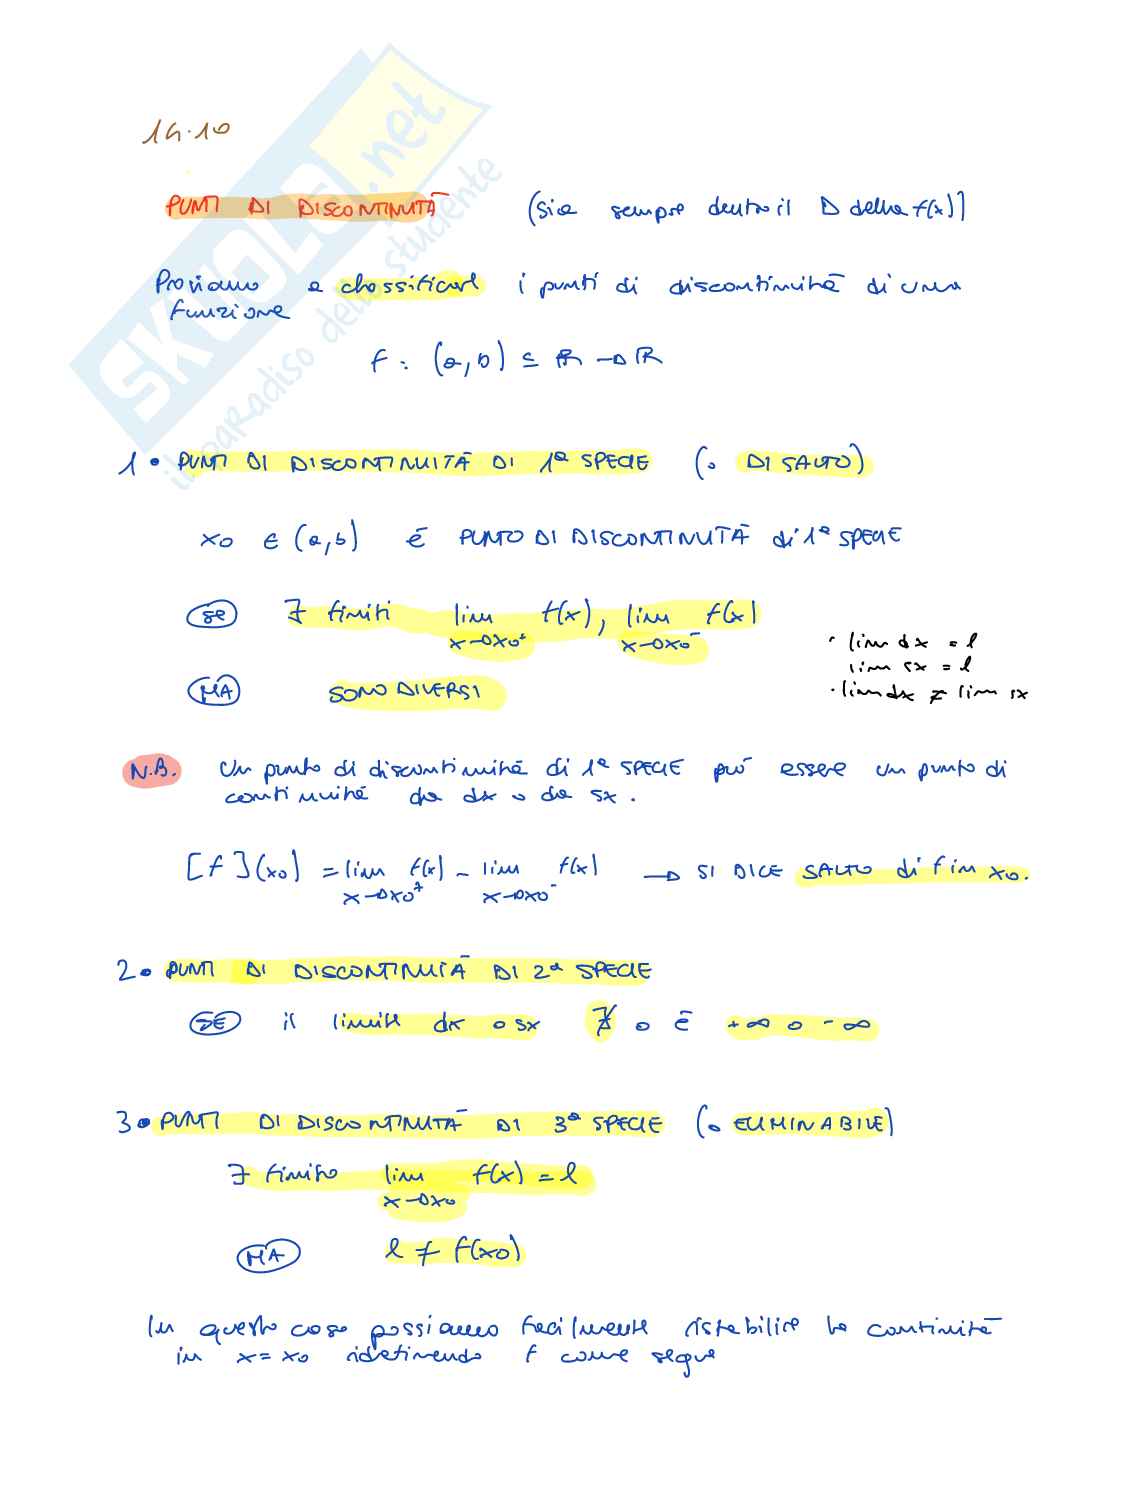 14.10
PUNTI DI DISCONTINUITÀ (sia sempre dentro il D della f(x))
Proviamo a classificare i punti di discontinuità di una
funzione
f : (a,b) ⊆ ℝ → ℝ
1• PUNTI DI DISCONTINUITÀ DI 1ª SPECIE (o DI SALTO)
x0 ∈ (a,b) é PUNTO DI DISCONTINUITÀ di 1ª SPECIE
se ∃ finiti lim f(x), lim f(x)
x→x0⁺ x→x0⁻
MA SONO DIVERSI
• lim dx = l
lim sx = l
• lim dx ≠ lim sx
N.B. Un punto di discontinuità di 1ª SPECIE può essere un punto di
continuità da dx o da sx.
[f](x0) = lim f(x) - lim f(x) → SI DICE SALTO di f in x0.
x→x0⁺ x→x0⁻
2• PUNTI DI DISCONTINUITÀ DI 2ª SPECIE
SE il limite dx o sx ∄ o é +∞ o -∞
3• PUNTI DI DISCONTINUITÀ DI 3ª SPECIE (o ELIMINABILE)
∃ finito lim f(x) = l
x→x0
MA l ≠ f(x0)
In questo caso possiamo facilmente ristabilire la continuità
in x=x0 ridefinendo f come segue
SKUOLA.net
il paradiso dello studente